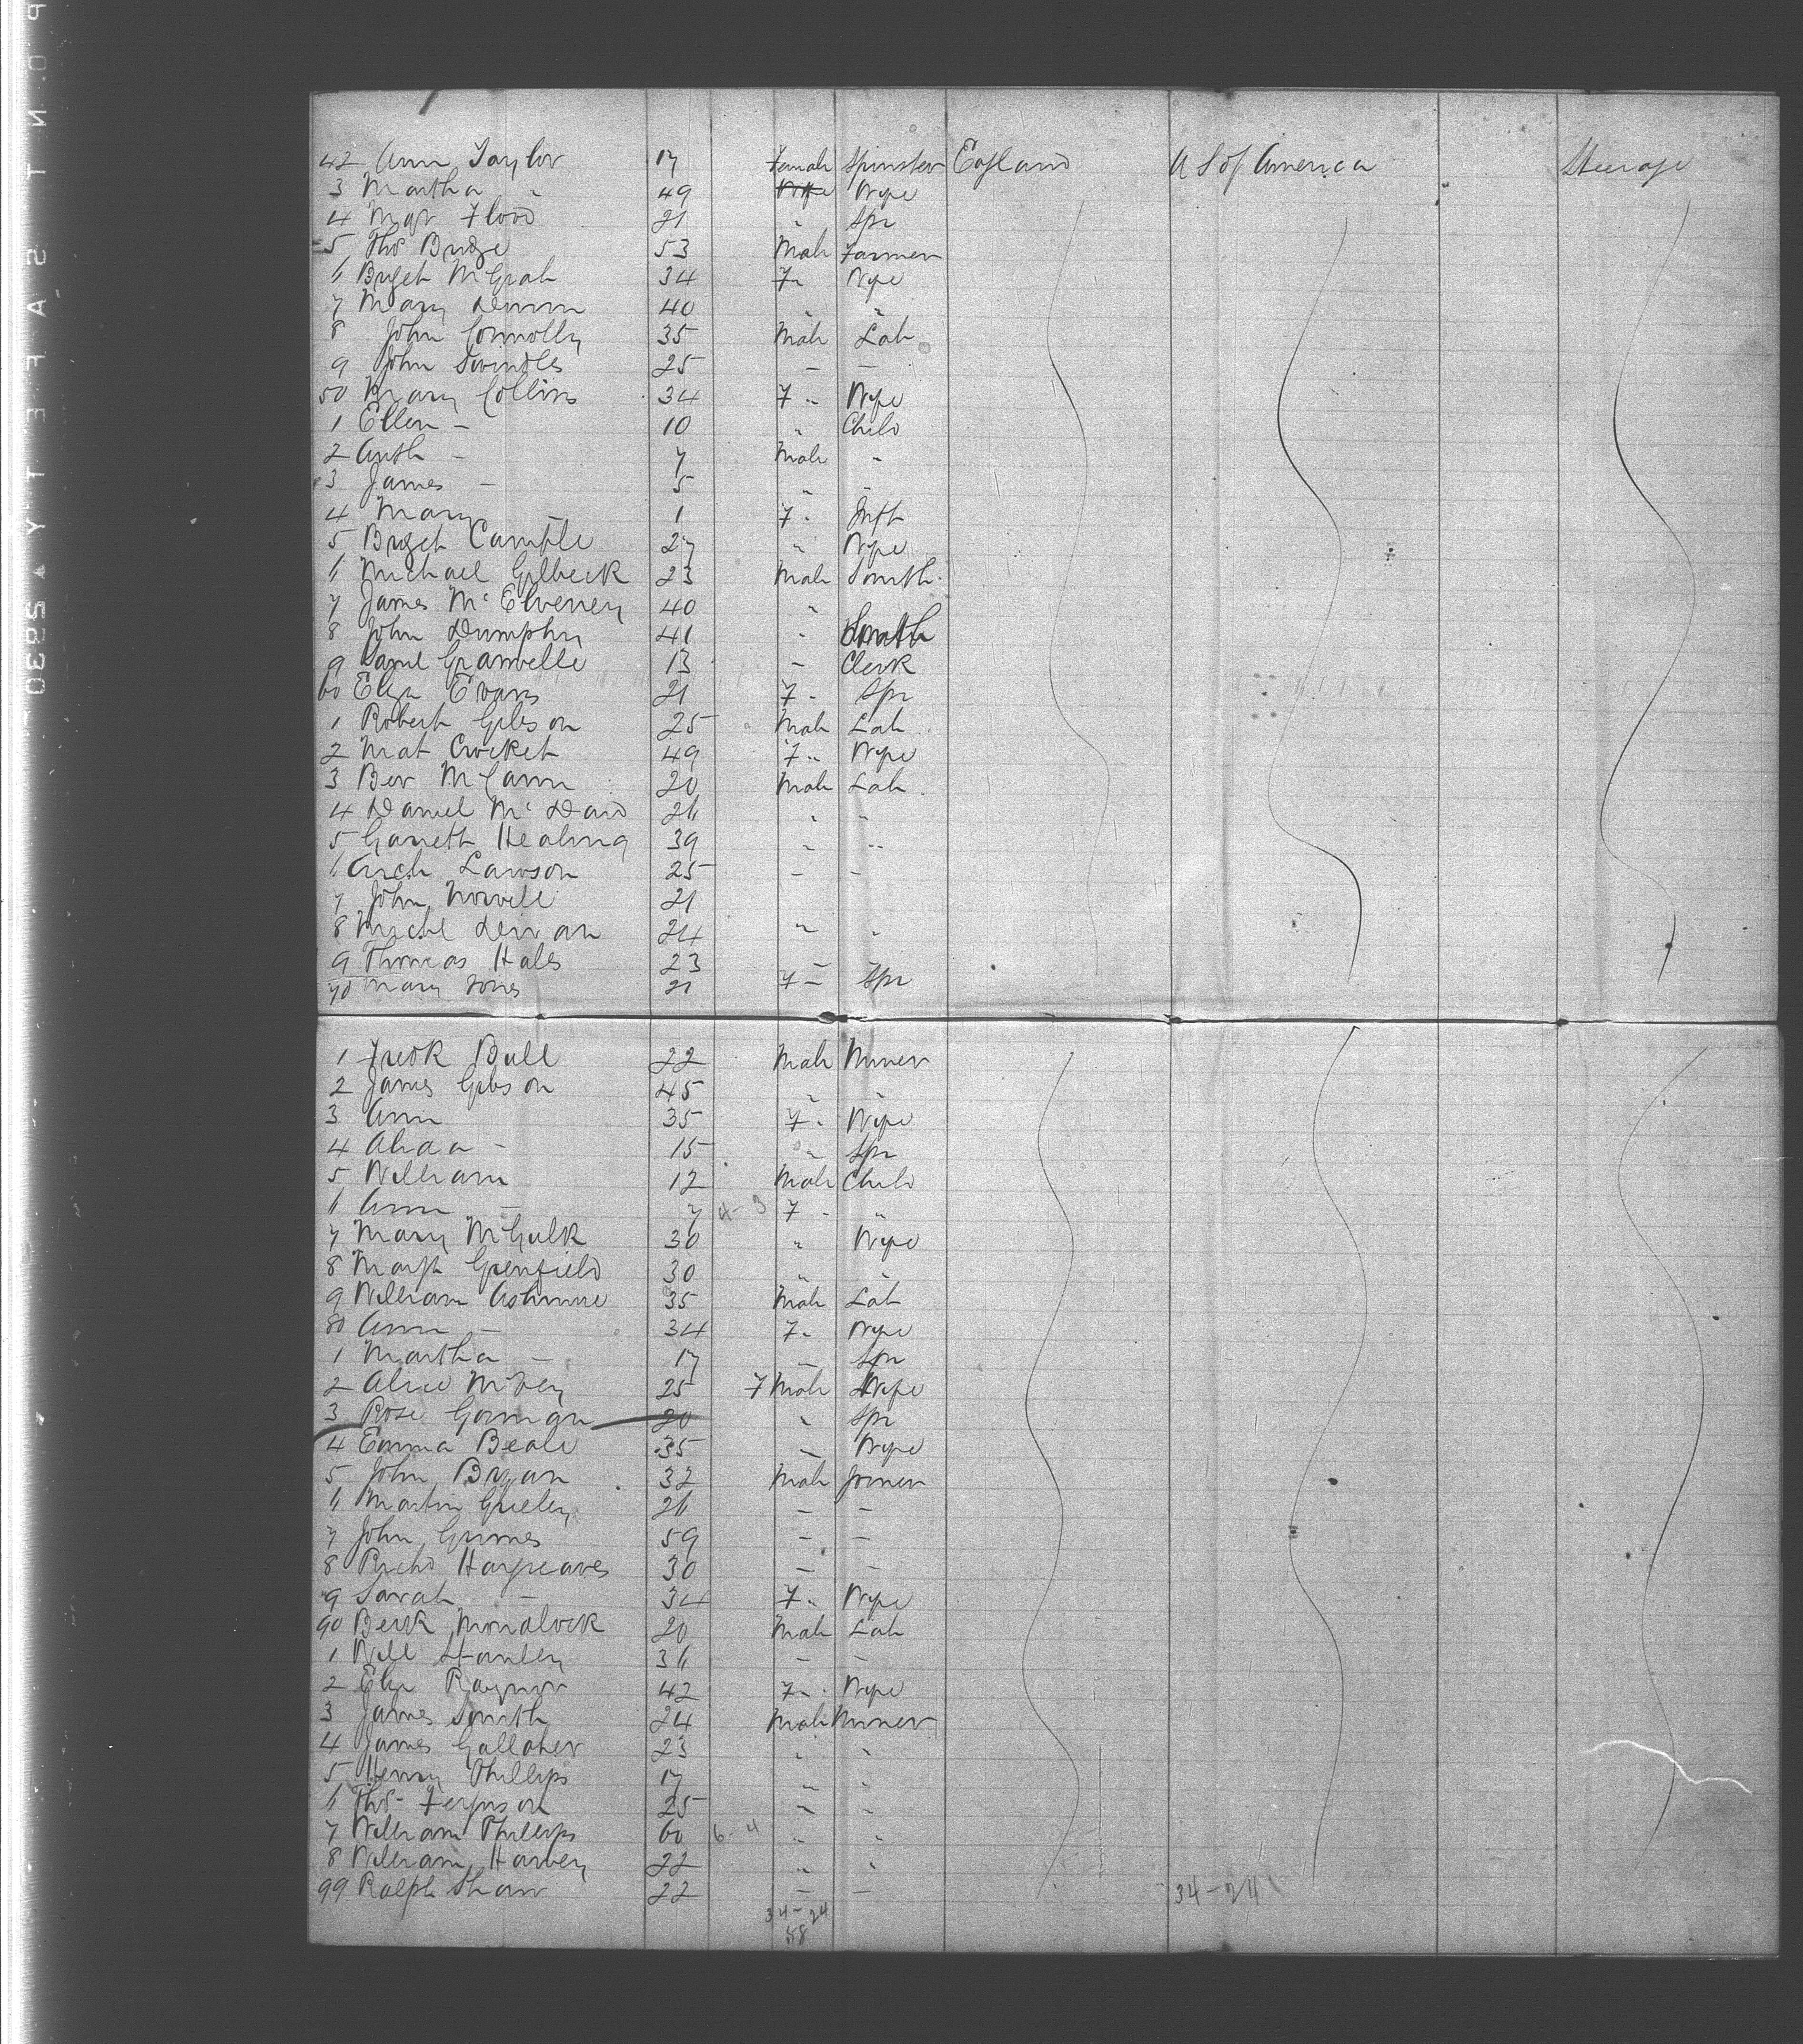 42 Ann Taylor 17 Female Spinster England U S of America Steerage
3 Martha " 49 Wife Wife
4 Mgt Flood 21 " Spr
5 Thos Budge 53 Male Farmer
6 Brget McGrah 34 F " Wife
7 Mary 40 " "
8 John Connolly 35 Male Lab
9 John Swindles 25 - -
50 Mary Collins 34 F " Wife
1 Ellen - 10 " Child
2 Anth - 7 Male "
3 James - 5 " "
4 Mary - 1 F " Inft
5 Brget Cample 27 " Wife
6 Michael Gilbeck 23 Male Smith
7 James McElveney 40 "
8 John Dumphy 41 " Smith
9 Saml Granvelle 13 - Clerk
60 Eliza Evans 21 F - Spr
1 Robert Gibson 25 Male Lab
2 Mat Crocket 49 F " Wife
3 Ber McCann 20 Male Lab
4 Daniel McDaid 26 " "
5 Garrett Healing 39 " "
6 Arch Lawson 25 - -
7 John Nowell 21
8 Michl 24 " "
9 Thomas Hales 23 -
70 Mary Jones 21 F - Spr
1 Fredk Bull 22 Male Miner
2 James Gibson 45 " "
3 Ann 35 F " Wife
4 - 15 " Spr
5 William 12 Male Child
6 Ann - 7 4-3 F " "
7 Mary McGulk 30 " Wife
8 Margt Grenfield 30 " "
9 William Ashmore 35 Male Lab
80 Ann - 34 F " Wife
1 Martha - 17 - Spr
2 Alice McVey 25 F Male Wife
3 Rose Gorman 20 " Spr
4 Emma Beale 35 - Wife
5 John Bryan 32 Male Joiner
6 Martin Grieley 26 - -
7 John Grimes 59 - -
8 Richd Hargreaves 30 - -
9 Sarah - 34 F " Wife
90 Mondlock 20 Male Lab
1 Will Stanley 36 - -
2 Eliz Raynor 42 F " Wife
3 James Smith 24 Male Miner
4 James Gallaher 23 " "
5 Henry Phillips 17 " "
6 Thos Ferguson 25 " "
7 William Phillips 60 6-4 " "
8 William Harvey 22 " "
99 Ralph Shaw 22 - - 34-24
34-24
58